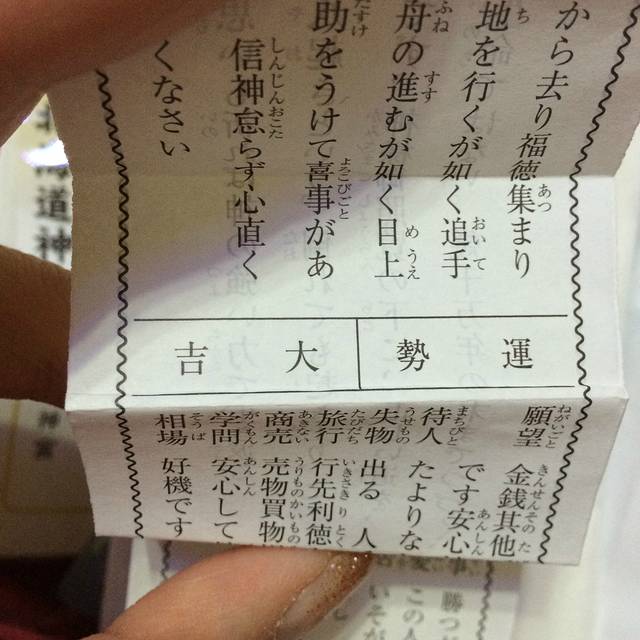 から去り福徳集まり
地を行くが如く追手
舟の進むが如く目上
助をうけて喜事があ
信神怠らず心直く
くなさい
運勢 大吉
願望 金銭其他
です安心
待人 たよりな
失物 出る 人
旅行 行先利徳
商売 売物買物
学問 安心して
相場 好機です
道神